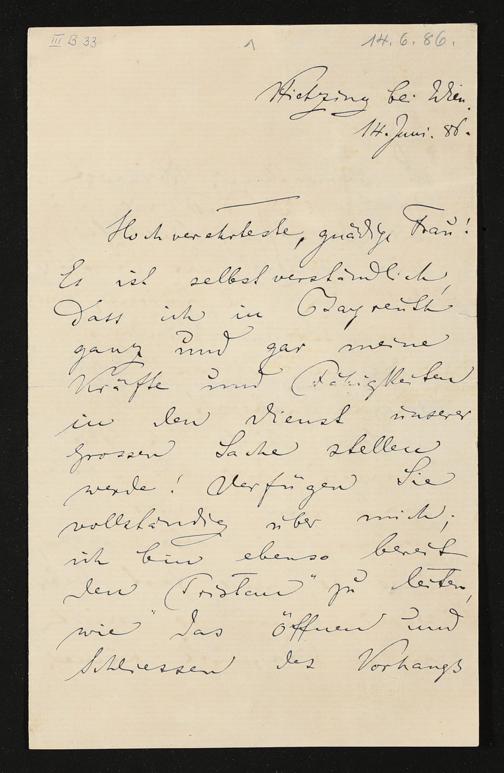 III B 33
1
14.6.86.
Hietzing bei Wien.
14. Juni. 86.
Hochverehrteste, gnädige Frau!
Es ist selbstverständlich,
dass ich in Bayreuth
ganz und gar meine
Kräfte und Fähigkeiten
in den Dienst unserer
grossen Sache stellen
werde! Verfügen Sie
vollständig über mich;
ich bin ebenso bereit
den „Tristan" zu leiten,
wie das Öffnen und
Schliessen des Vorhangs